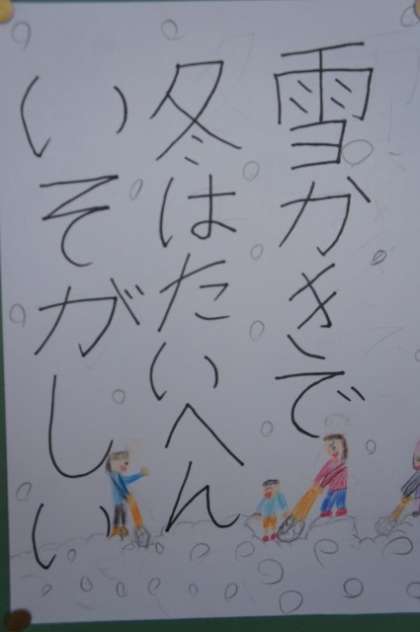 雪かきで
冬はたいへん
いそがしい